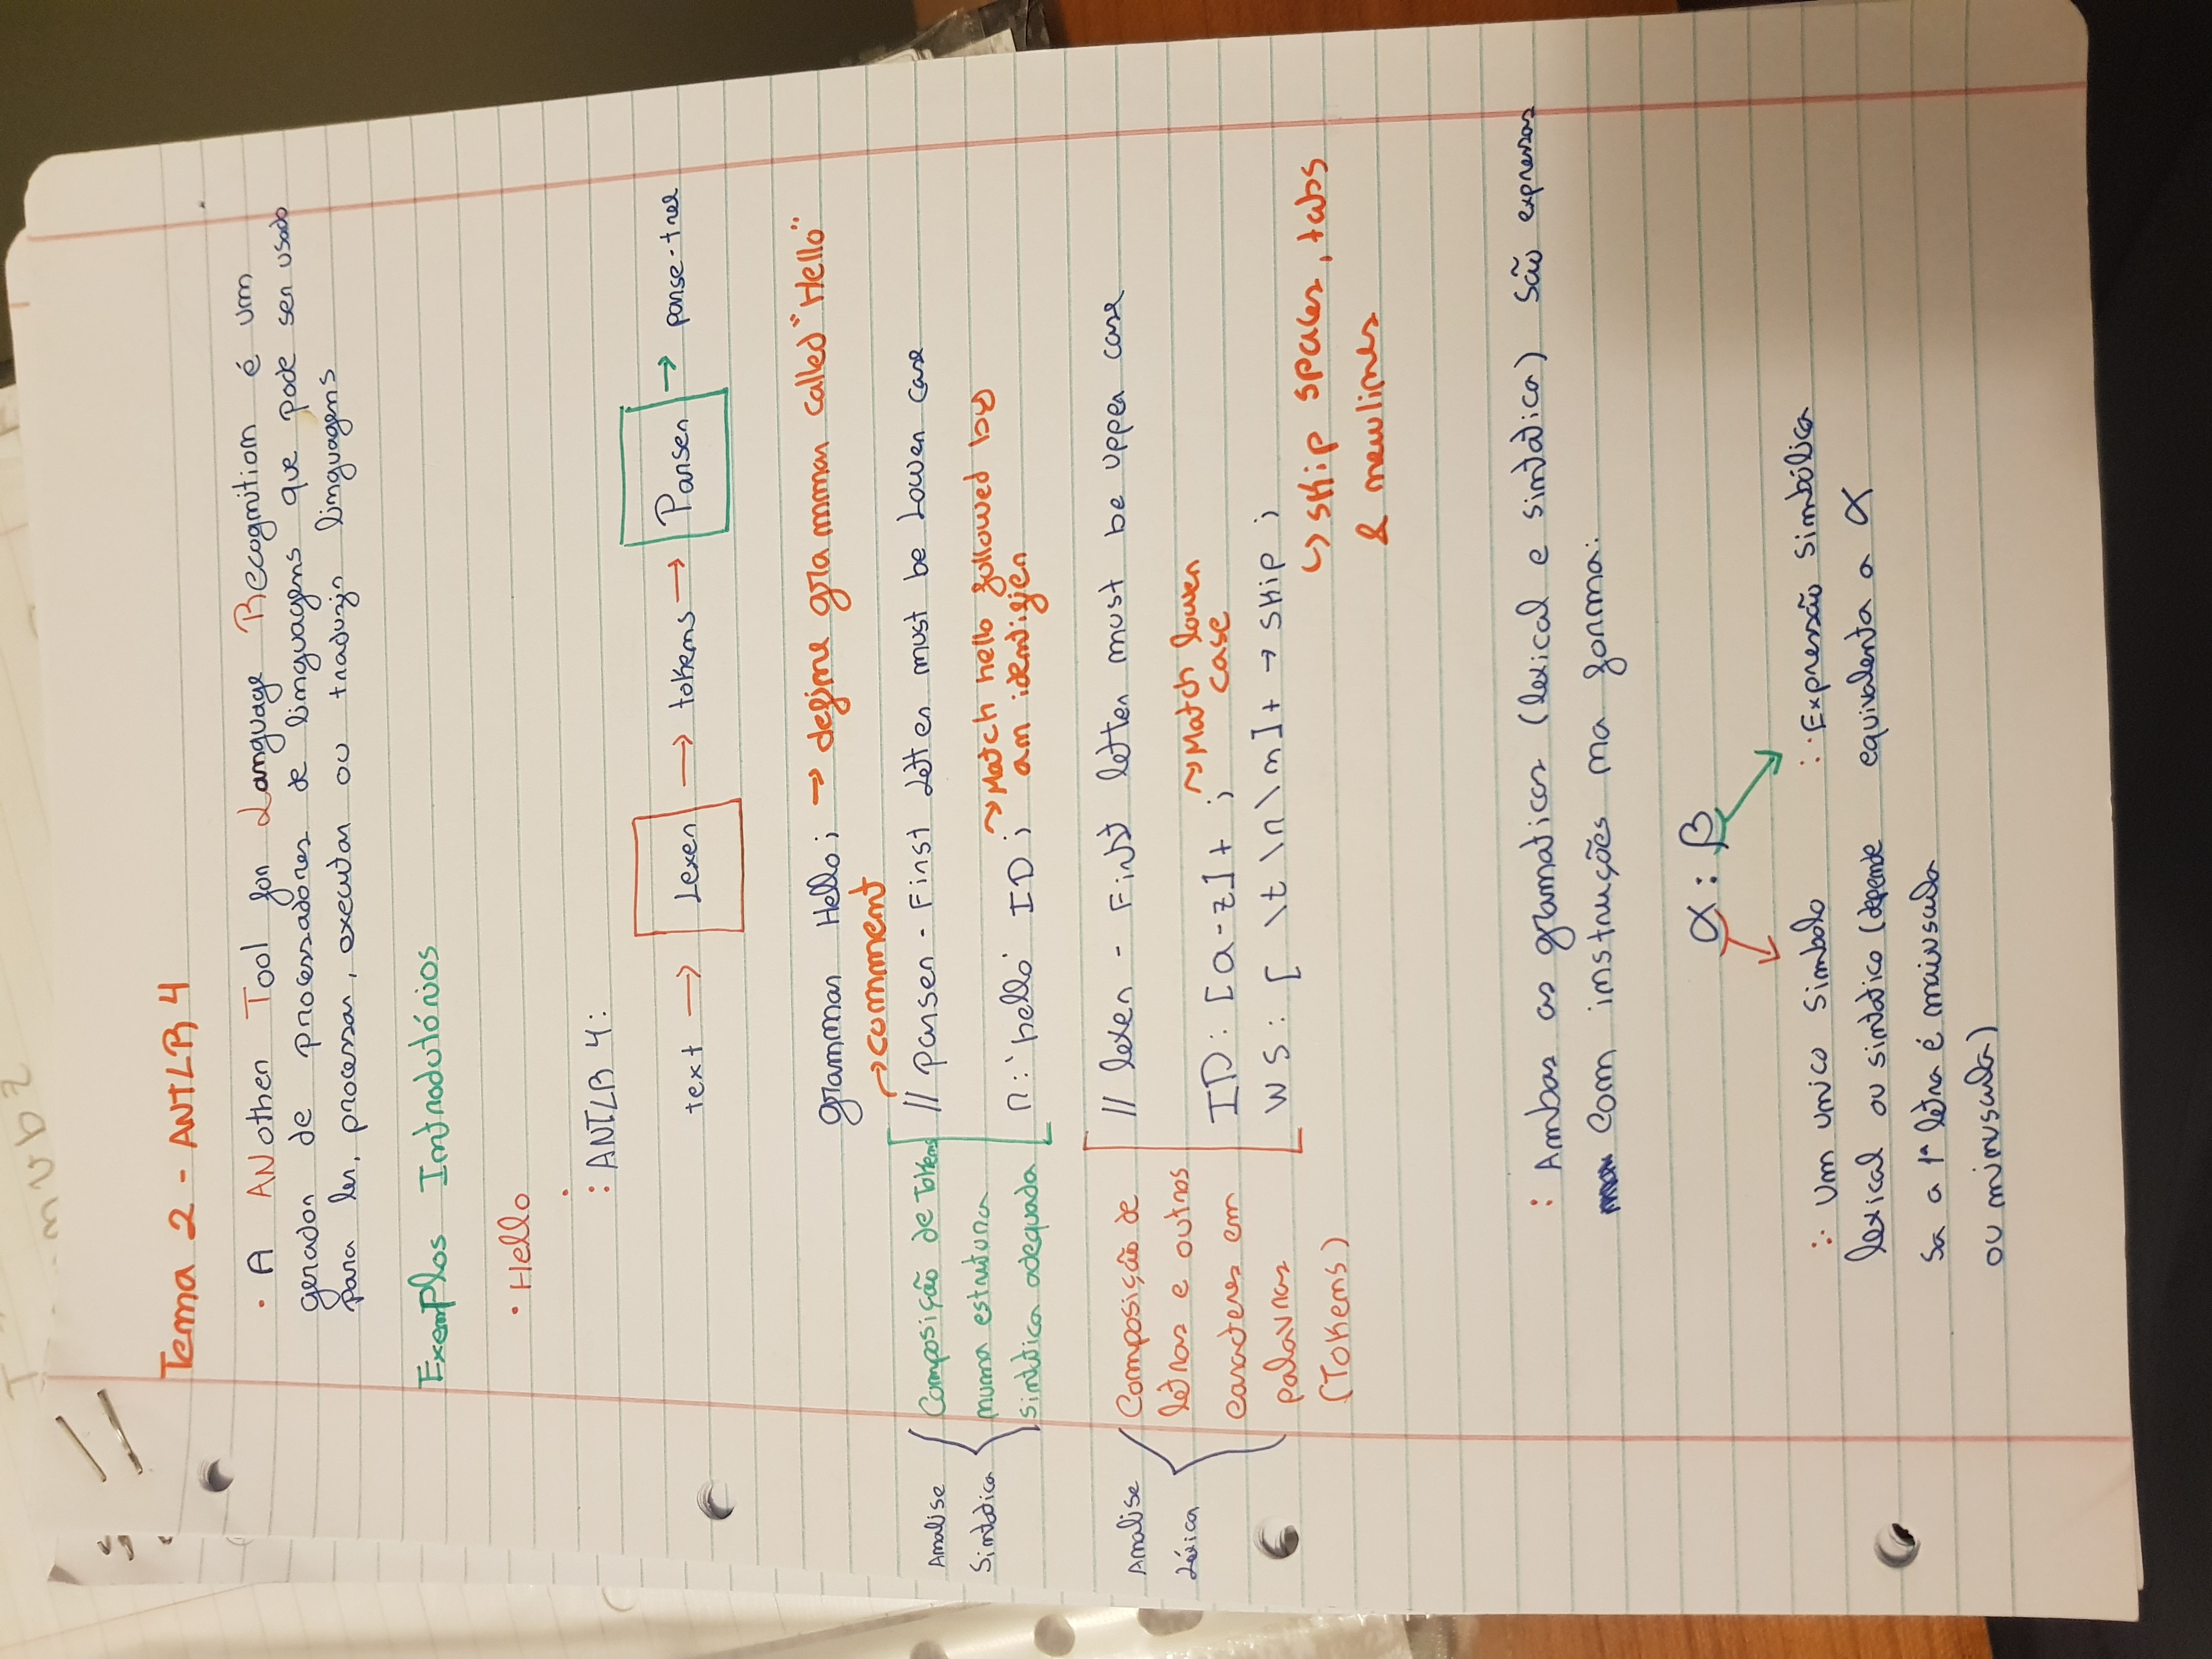 Tema 2 - ANTLR 4
• A ANother Tool for Language Recognition é um
gerador de processadores de linguagens que pode ser usado
para ler, processar, executar ou traduzir linguagens
Exemplos Introdutórios
• Hello
: ANTLR 4:
text → Lexer → tokens → Parser → parse-tree
grammar Hello ; → define grammar called "Hello"
→ comment
Analise
Sintática
Composição de Tokens
numa estrutura
sintática adequada
// parser - First Letter must be Lower case
r : 'hello' ID ; → Match hello followed by
an identifier
Analise
Léxica
Composição de
letras e outros
caracteres em
palavras
(Tokens)
// lexer - First letter must be upper case
ID : [a-z]+ ; → Match lower
case
WS : [ \t \r \n ]+ → skip ;
↳ skip spaces, tabs
& newlines
: Ambas as gramaticas (lexical e sintatica) são expressas
com instruções na forma:
α : β
∴ Um unico simbolo
lexical ou sintatico (depende
sa a 1ª letra é maiuscula
ou minuscula)
∴ Expressão simbólica
equivalenta a α